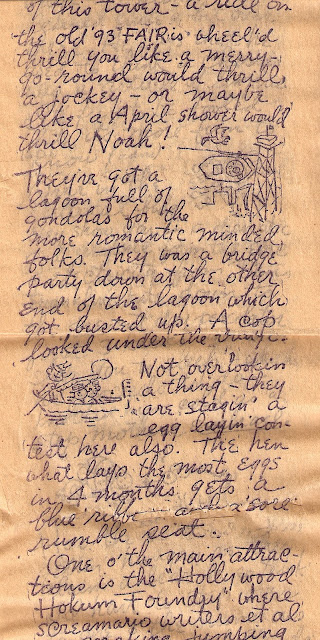 of this tower - a ride on
the old '93 FAIR is wheel'd
thrill you like a merry-
go-round would thrill
a jockey - or maybe
like a April shower would
thrill Noah!
They've got a
lagoon full of
gondolas for the
more romantic minded
folks. They was a bridge
party down at the other
end of the lagoon which
got busted up. A cop
looked under the bridge.
Not overlookin'
a thing - they
are stagin' a
egg layin' con-
test here also. The hen
what lays the most eggs
in 4 months gets a
blue ribbon and a sore
rumble seat.
One o' the main attrac-
tions is the "Hollywood
Hokum Foundry" where
screamario writers et al
jumping